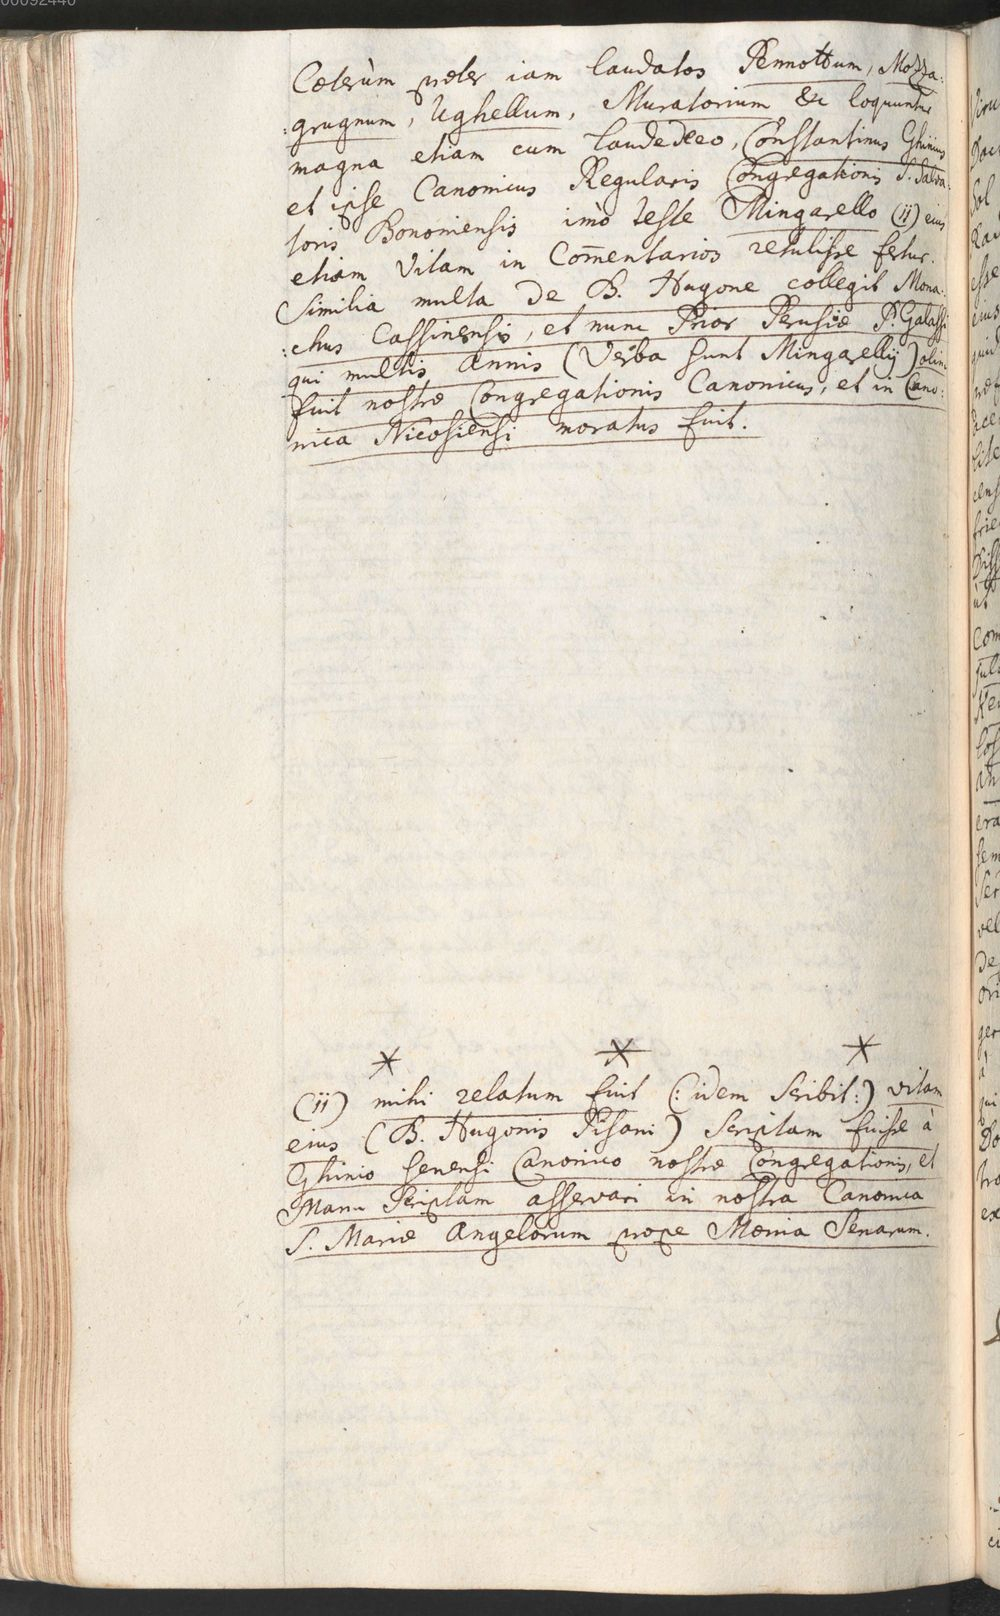 Cœterùm præter iam laudatos Pennottum, Mozza:
:grugnum, Ughellum, Muratorium &c loquuntur
magna etiam cum laude de eo, Constantinus Ghinius
et ipse Canonicus Regularis Congregationis S. Salva:
toris Bononiensis imò teste Mingarello (11) eius
etiam Vitam in Com̄entarios retulisse fertur.
Similia multa de B. Hugone collegit Mona:
:chus Cassinensis, et nunc Prior Perusiæ P. Galassi
qui multis annis (Verba sunt Mingarellij) olim
fuit nostræ Congregationis Canonicus, et in Cano:
nica Nicosiensi moratus fuit.
(11) mihi relatum fuit (: idem scribit:) vitam
eius (B. Hugonis Pisani) scriptam fuisse à
Ghinio Senensi Canonico nostræ Congregationis, et
Manu scriptam asservari in nostra Canonica
S. Mariæ Angelorum prope Mœnia Senarum.